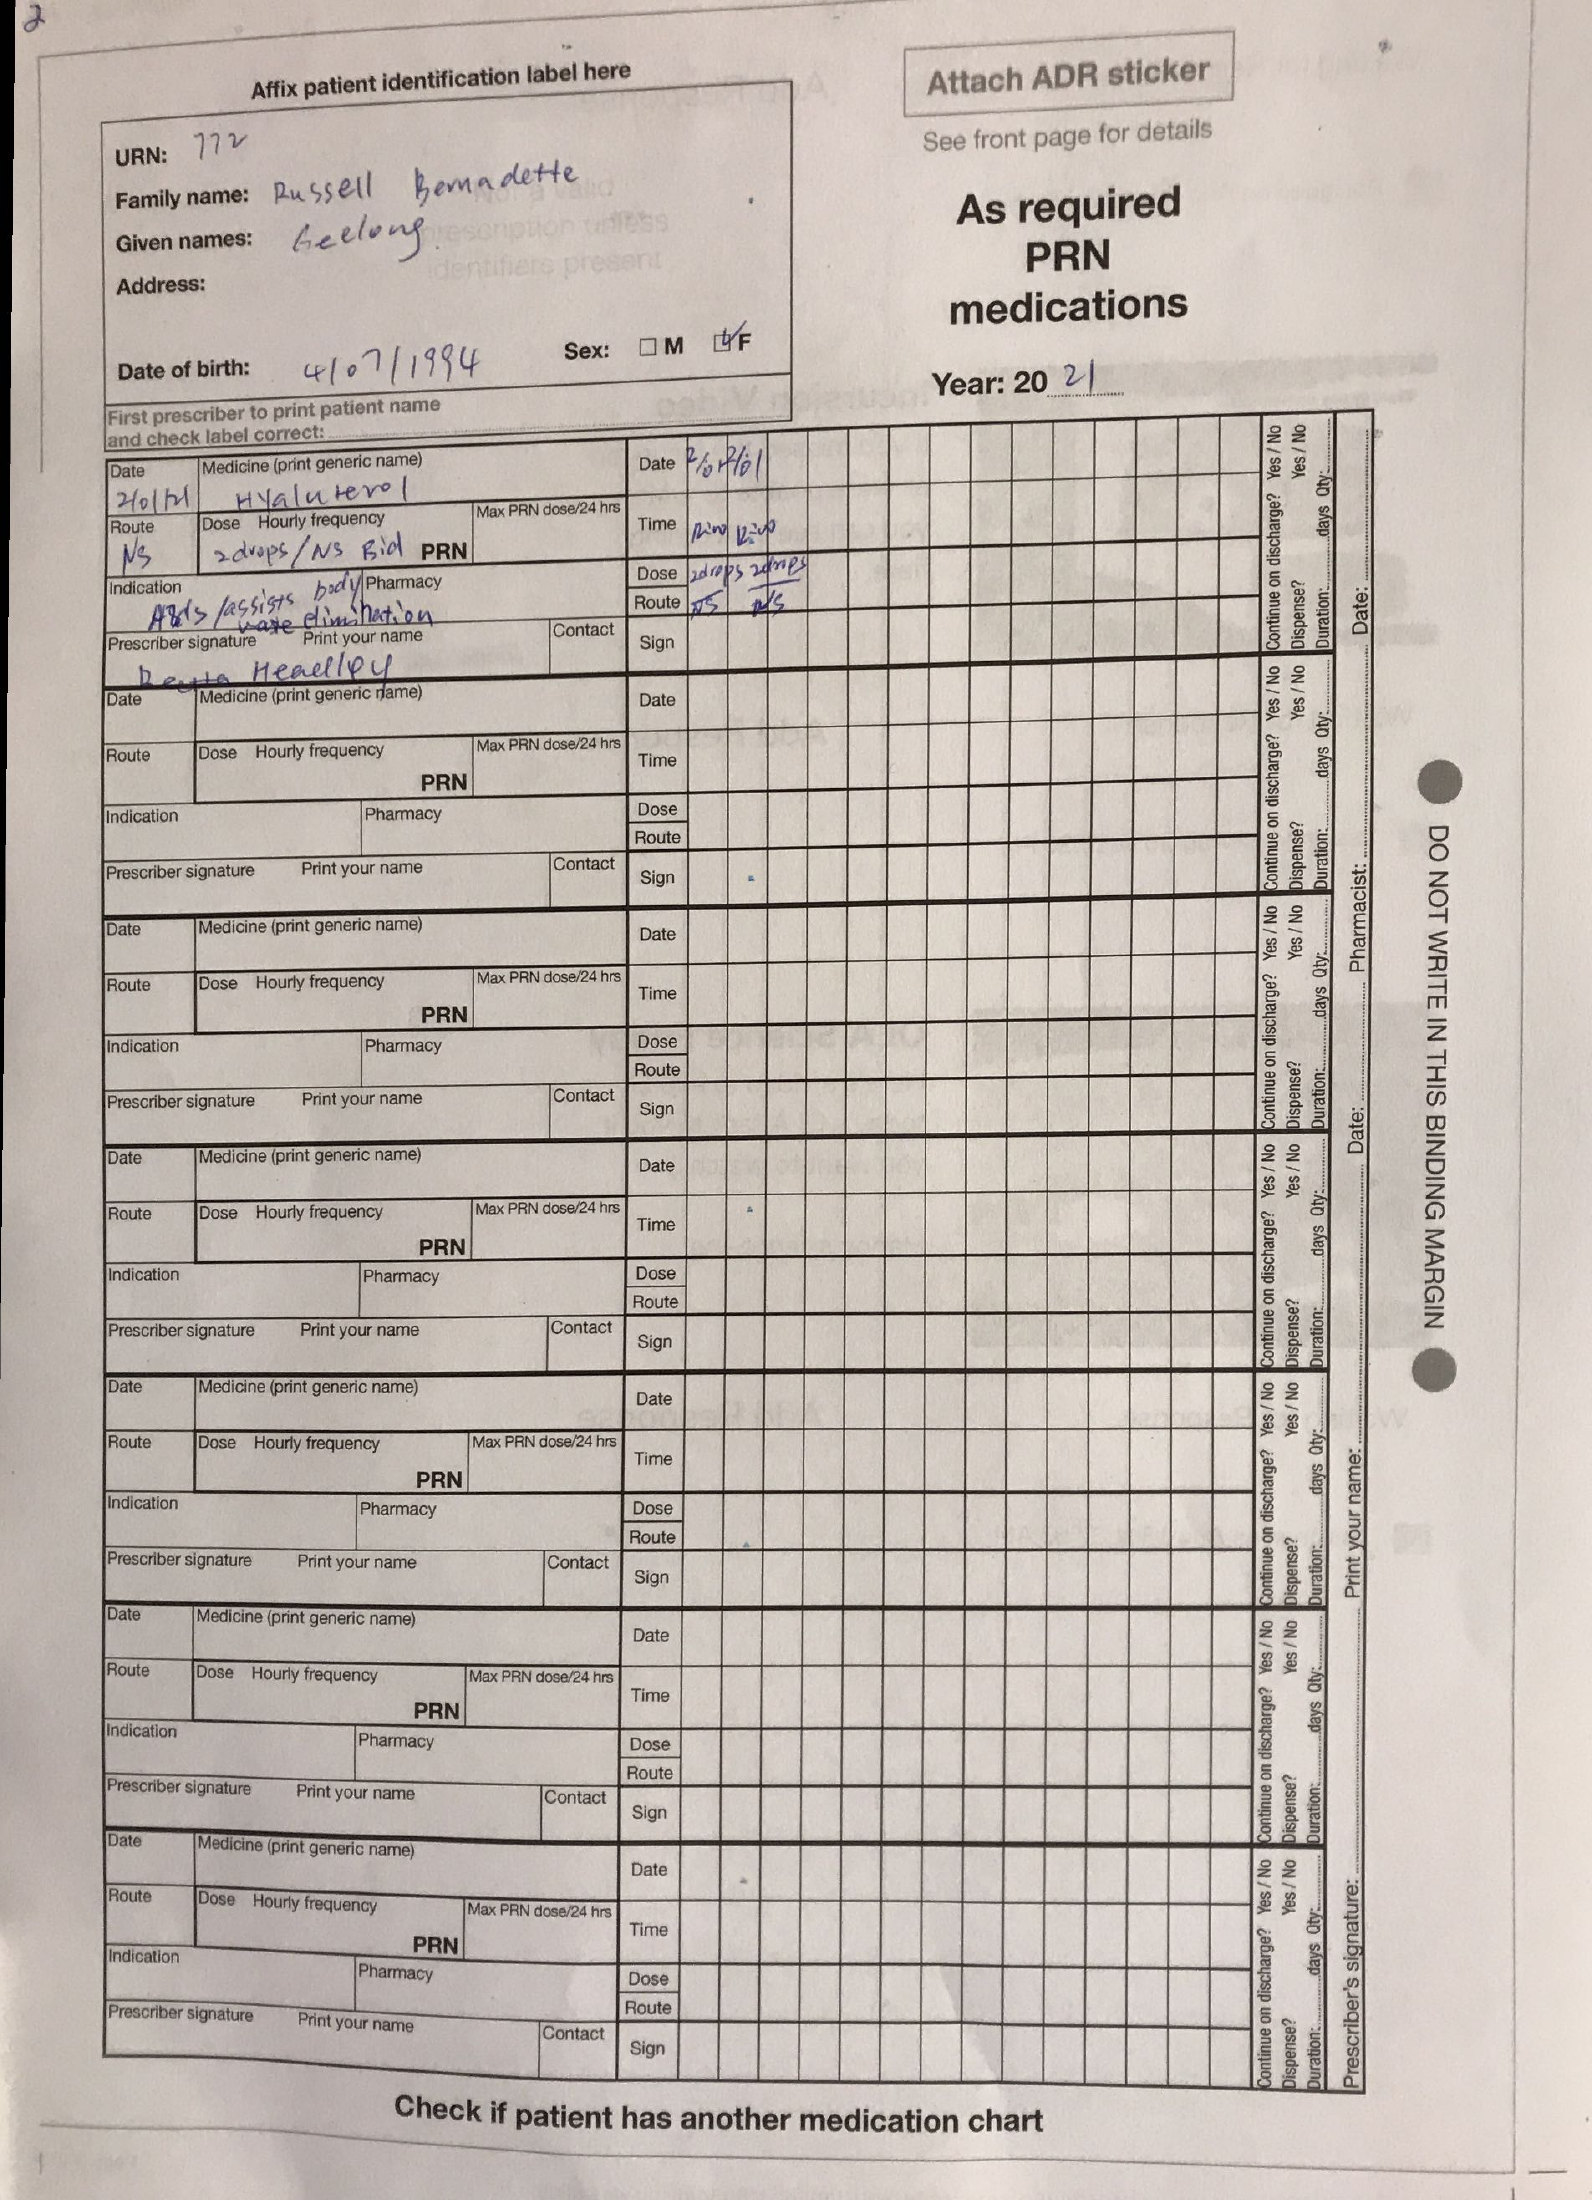 2
Affix patient identification label here
Attach ADR sticker
See front page for details
URN: 772
Family name: Russell Bernadette
Given names: Geelong.
Address:
Date of birth: 4/07/1994 Sex: M F
First prescriber to print patient name
and check label correct:
As required
PRN
medications
Year: 20 21
Date Medicine (print generic name) Date
Hyaluterol
Route Dose Hourly frequency Max PRN dose/24 hrs Time
NS 2drops/NS Bid PRN
Indication body Pharmacy Dose 2drops 2drops
/assists elimination Route NS N/S
Prescriber signature Print your name Contact Sign
Continue on discharge? Yes / No
Dispense? Yes / No
Duration: days Qty:
Date Medicine (print generic name) Date
Route Dose Hourly frequency Max PRN dose/24 hrs Time
PRN
Indication Pharmacy Dose
Route
Prescriber signature Print your name Contact Sign
Continue on discharge? Yes / No
Dispense? Yes / No
Duration: days Qty:
Date Medicine (print generic name) Date
Route Dose Hourly frequency Max PRN dose/24 hrs Time
PRN
Indication Pharmacy Dose
Route
Prescriber signature Print your name Contact Sign
Continue on discharge? Yes / No
Dispense? Yes / No
Duration: days Qty:
Date Medicine (print generic name) Date
Route Dose Hourly frequency Max PRN dose/24 hrs Time
PRN
Indication Pharmacy Dose
Route
Prescriber signature Print your name Contact Sign
Continue on discharge? Yes / No
Dispense? Yes / No
Duration: days Qty:
Date Medicine (print generic name) Date
Route Dose Hourly frequency Max PRN dose/24 hrs Time
PRN
Indication Pharmacy Dose
Route
Prescriber signature Print your name Contact Sign
Continue on discharge? Yes / No
Dispense? Yes / No
Duration: days Qty:
Date Medicine (print generic name) Date
Route Dose Hourly frequency Max PRN dose/24 hrs Time
PRN
Indication Pharmacy Dose
Route
Prescriber signature Print your name Contact Sign
Continue on discharge? Yes / No
Dispense? Yes / No
Duration: days Qty:
Date Medicine (print generic name) Date
Route Dose Hourly frequency Max PRN dose/24 hrs Time
PRN
Indication Pharmacy Dose
Route
Prescriber signature Print your name Contact Sign
Continue on discharge? Yes / No
Dispense? Yes / No
Duration: days Qty:
Prescriber's signature: Print your name: Date: Pharmacist: Date:
DO NOT WRITE IN THIS BINDING MARGIN
Check if patient has another medication chart